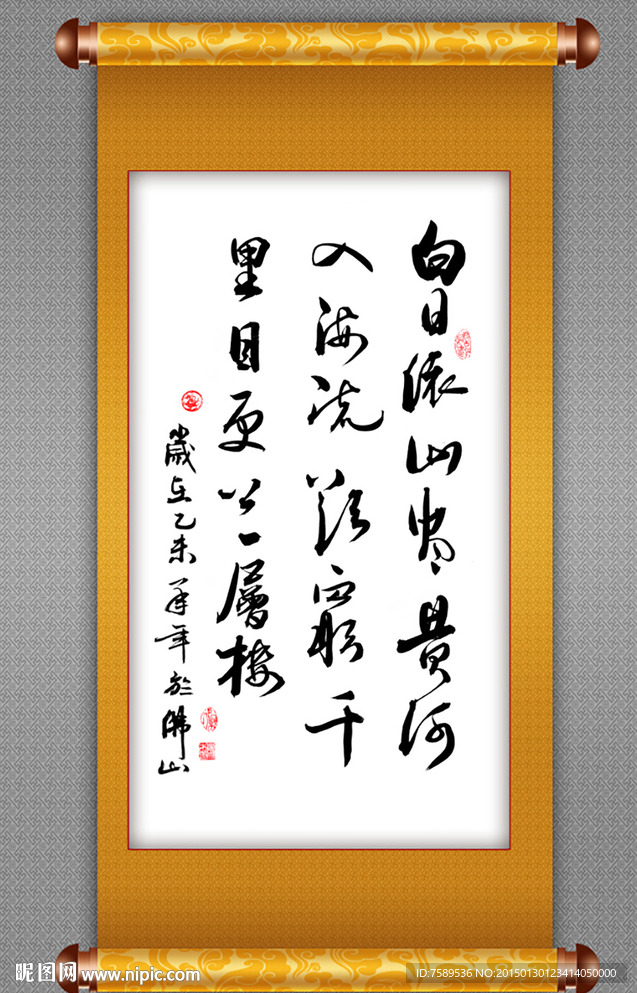 白日依山尽黄河
入海流欲窮千
里目更上一層樓
歲在乙未羊年於佛山
昵图网 www.nipic.com
ID:7589536 NO:20150130123414050000